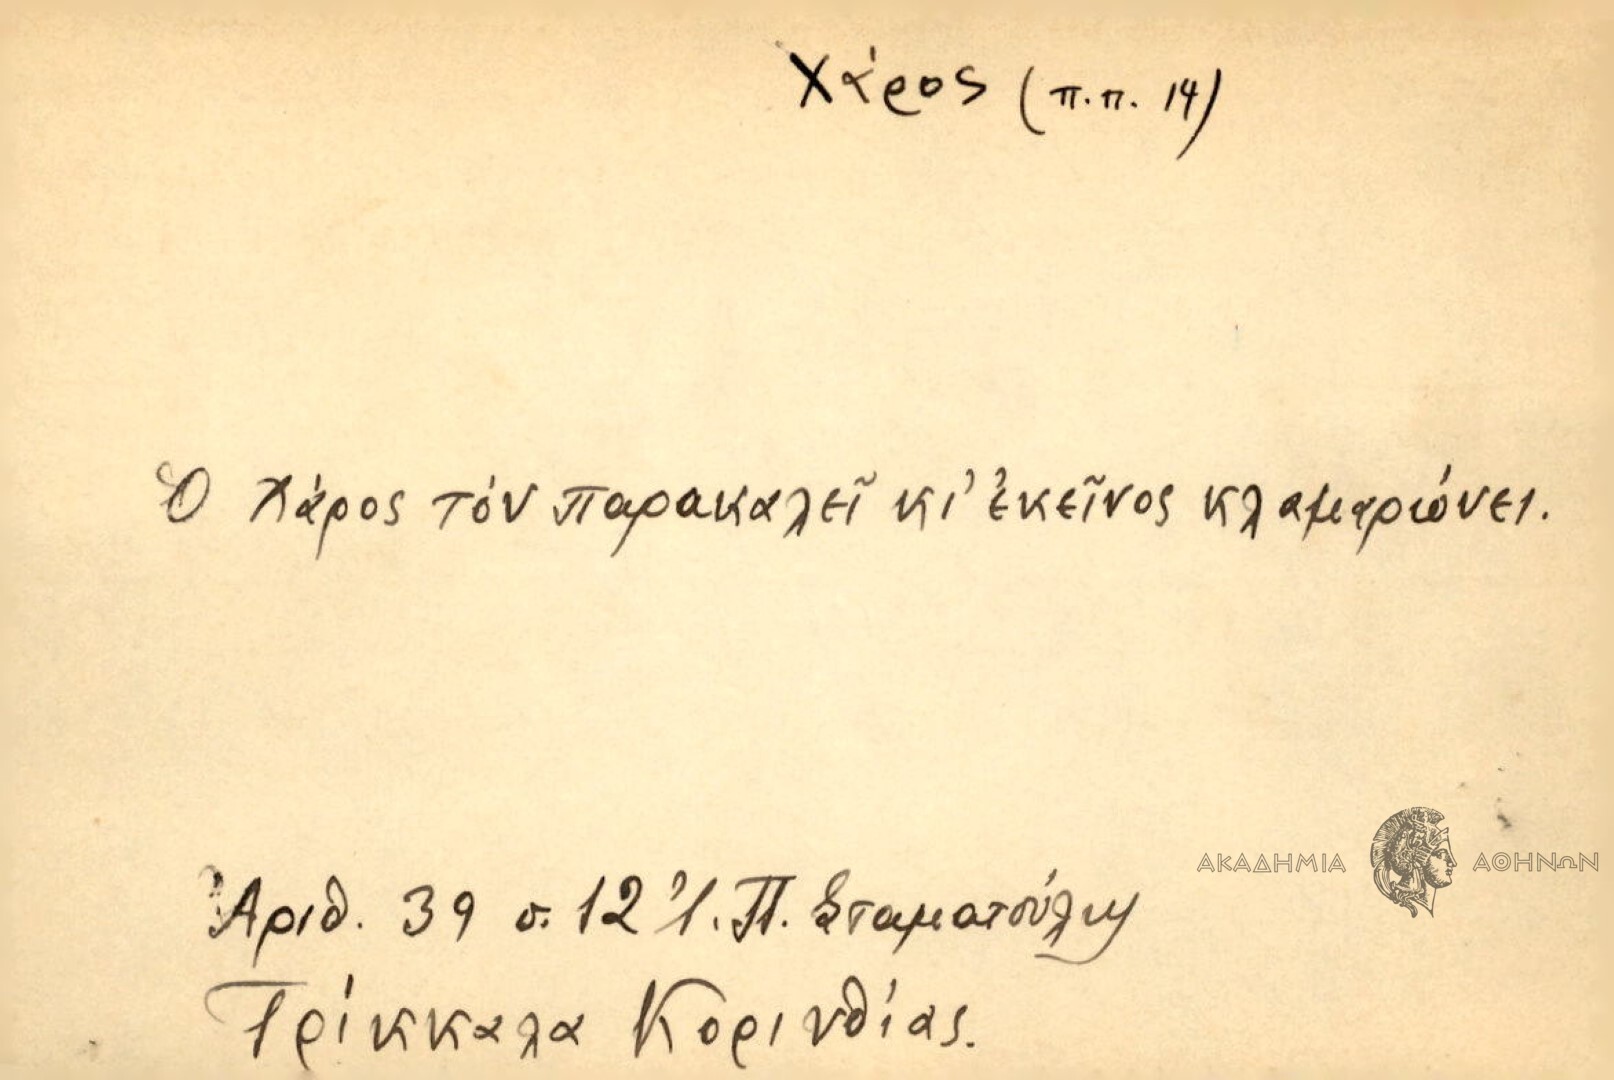 Χάρος (π.π. 14)
Ὁ Χάρος τόν παρακαλεῖ κι' ἐκεῖνος κλαμαριώνει.
ΑΚΑΔΗΜΙΑ ΑΘΗΝΩΝ
Ἀριθ. 39 σ. 12 Ἰ. Π. Σταματούλη
Τρίκκαλα Κορινθίας.